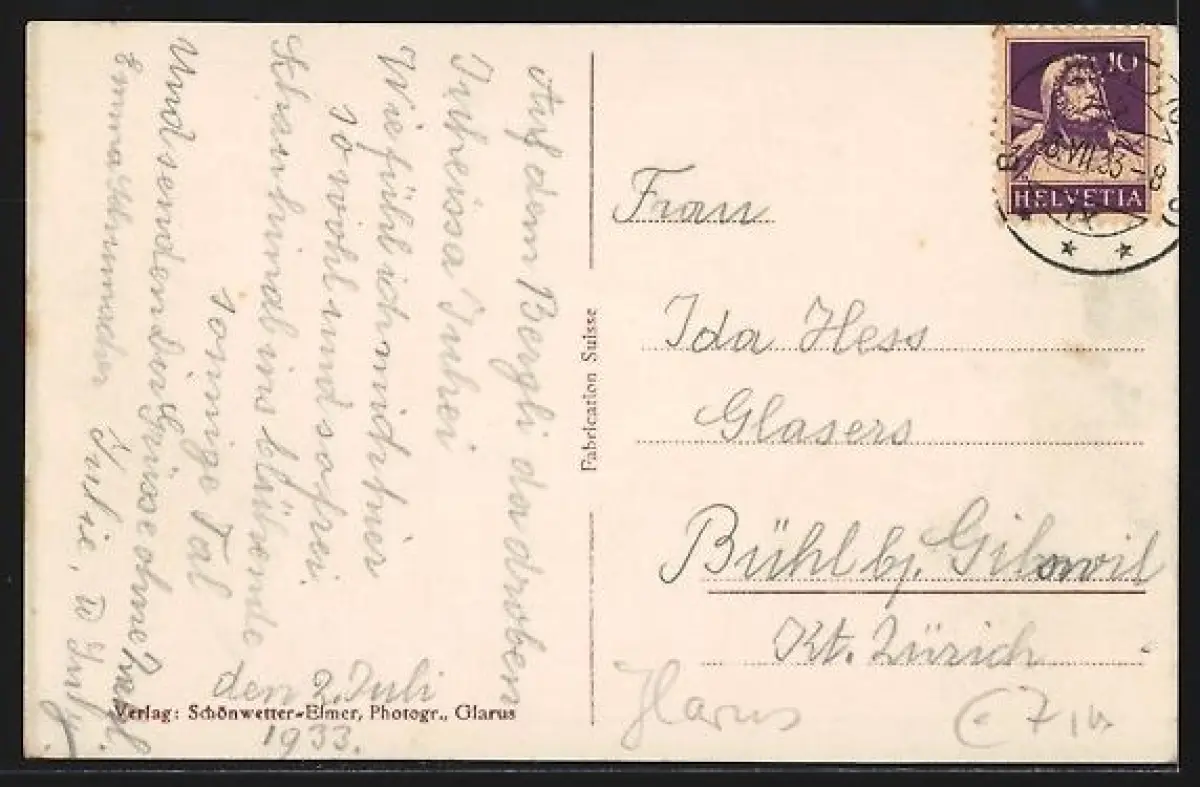 Auf dem Bergli da droben
Juheissa Juhei
Wie fühl ich mich hier
so wohl und so frei.
Khasch hinab ins blühende
sonnige Tal
Und senden dir Grüsse ohne Zahl.
Emma Schumacher Julie,
den 2. Juli
1933.
Verlag: Schönwetter-Elmer, Photogr., Glarus
Fabrication Suisse
10
HELVETIA
VII.33-8
Frau
Ida Hess
Glasers
Bühl bj. Gibswil
Kt. Zürich
Glarus